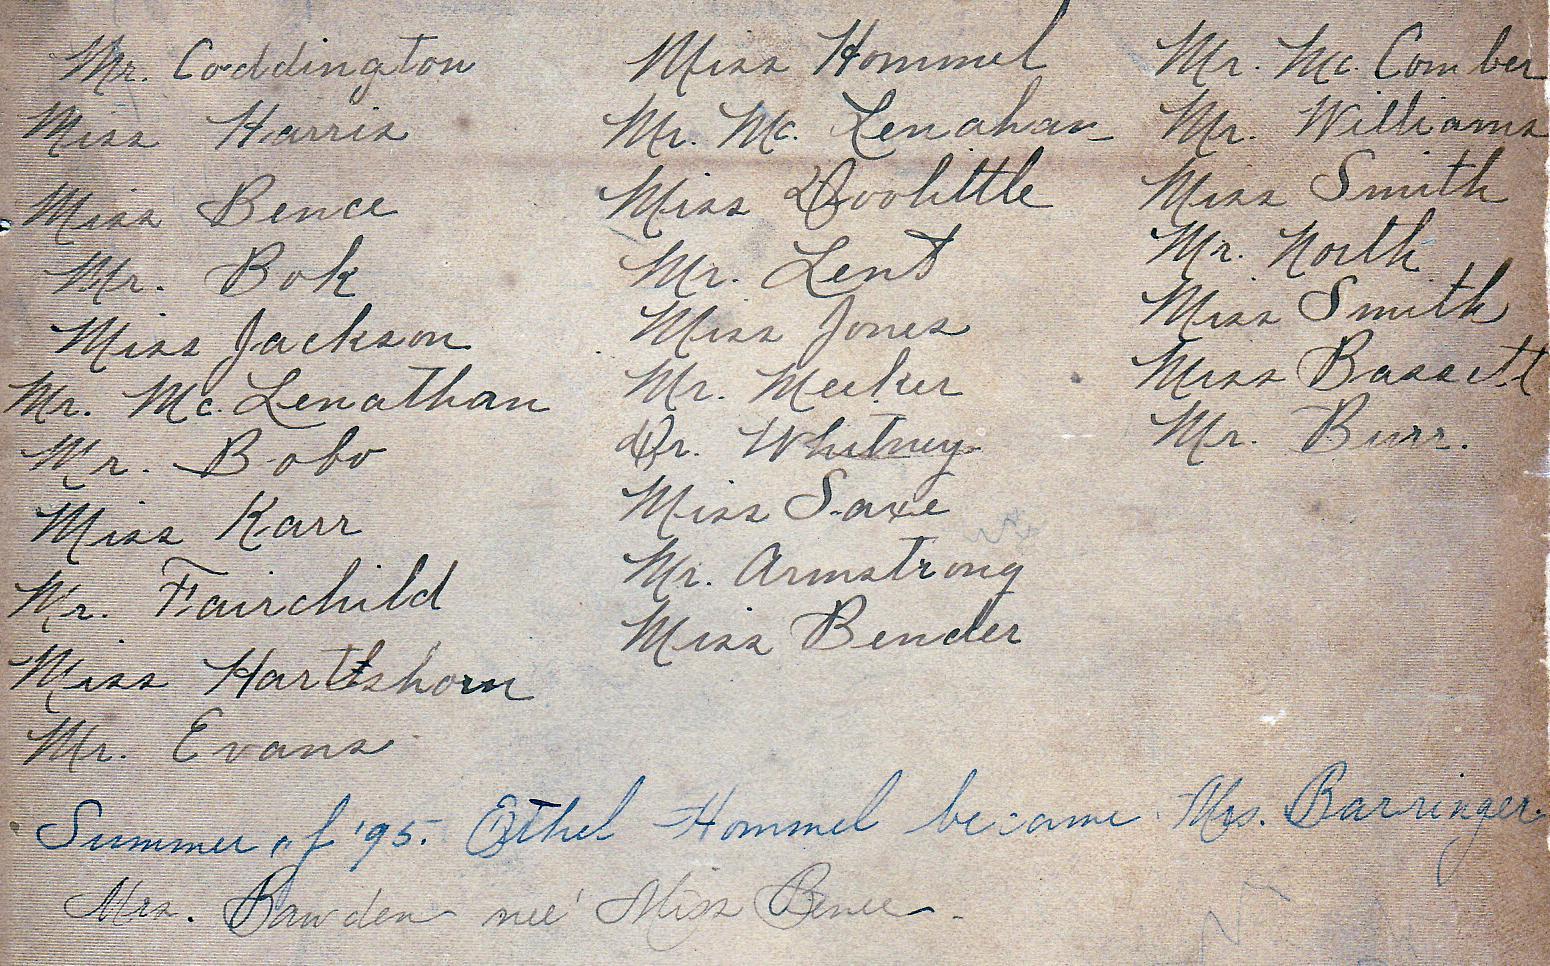 Mr. Coddington
Miss Harris
Miss Bence
Mr. Bok
Miss Jackson
Mr. Mc. Lenathan
Mr. Bobo
Miss Karr
Mr. Fairchild
Miss Hartshorn
Mr. Evans
Miss Hommel
Mr. Mc. Lenahan
Miss Doolittle
Mr. Lent
Miss Jones
Mr. Meeker
Dr. Whitney
Miss Saxe
Mr. Armstrong
Miss Bender
Mr. Mc. Comber
Mr. Williams
Miss Smith
Mr. North
Miss Smith
Miss Bassett
Mr. Burr.
Summer of '95. Ethel Hommel became Mrs. Barringer.
Mrs. Bawden neé Miss Bence.